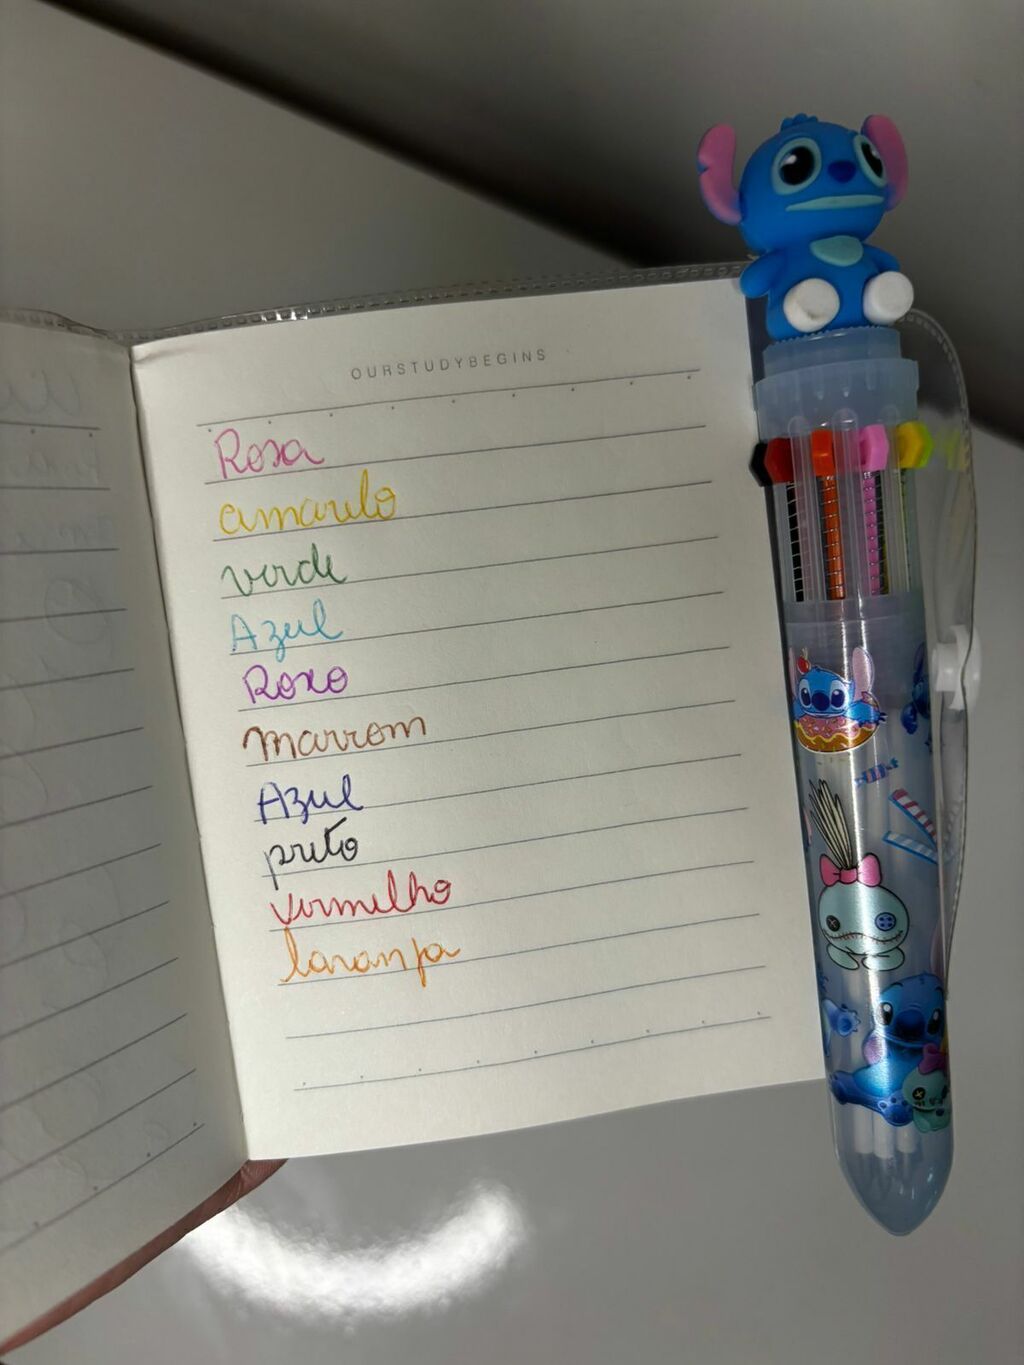 OURSTUDYBEGINS
Rosa
amarelo
verde
Azul
Roxo
marrom
Azul
preto
vermelho
laranja